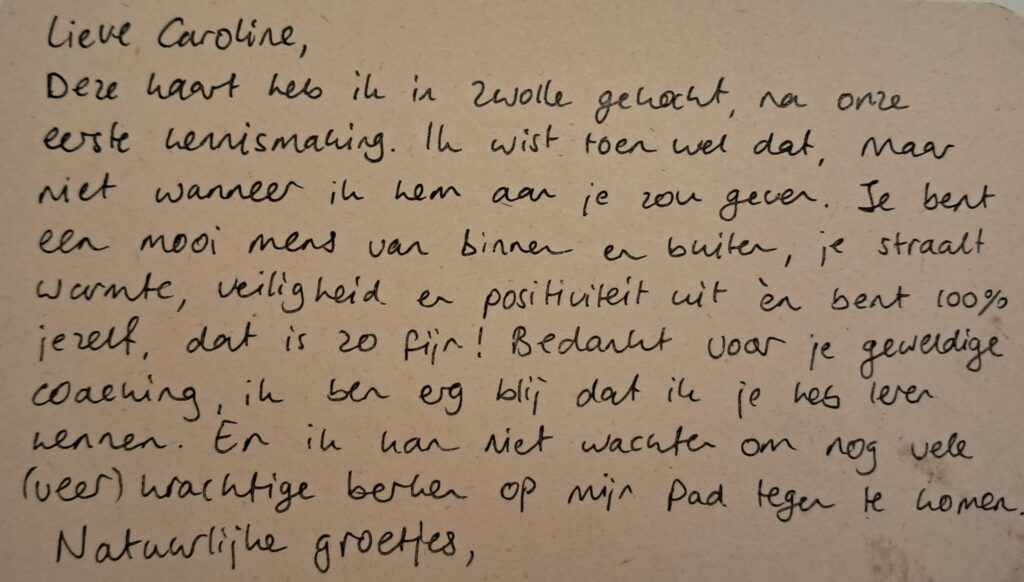 Lieve Caroline,
Deze kaart heb ik in Zwolle gekocht, na onze
eerste kennismaking. Ik wist toen wel dat, maar
niet wanneer ik hem aan je zou geven. Je bent
een mooi mens van binnen en buiten, je straalt
warmte, veiligheid en positiviteit uit èn bent 100%
jezelf, dat is zo fijn! Bedankt voor je geweldige
coaching, ik ben erg blij dat ik je heb leren
kennen. En ik kan niet wachten om nog vele
(veer)krachtige berken op mijn pad tegen te komen.
Natuurlijke groetjes,